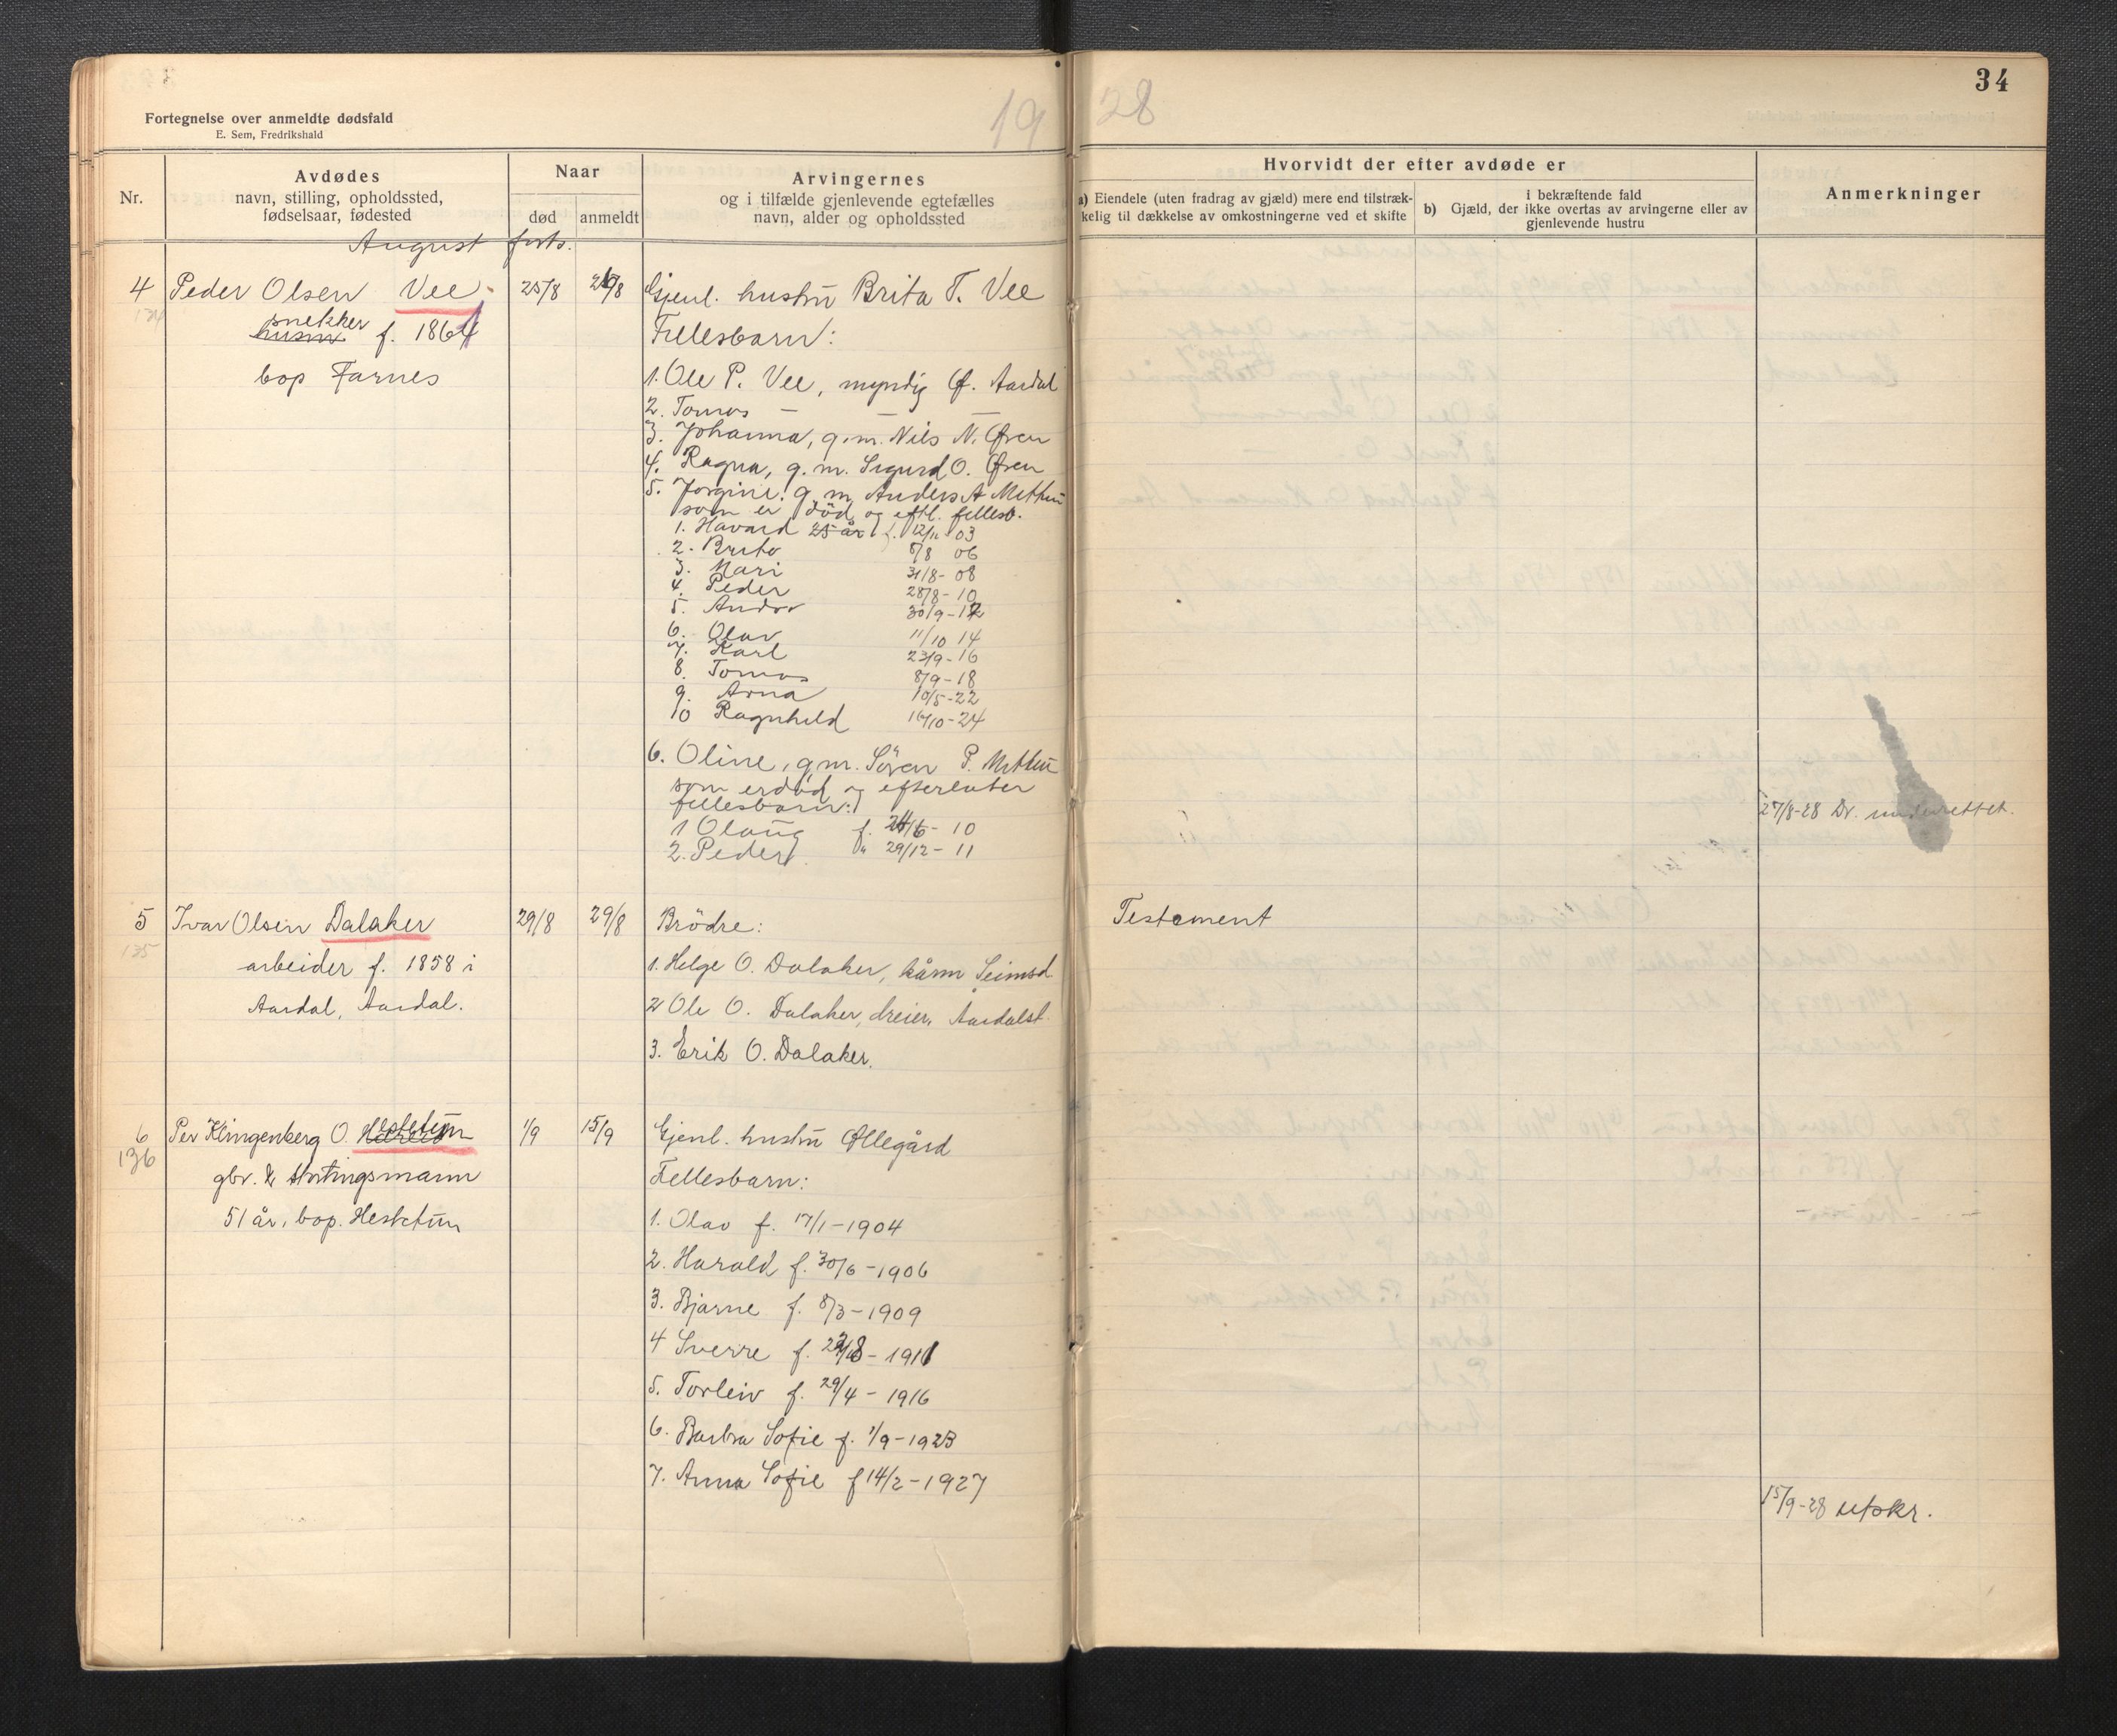 Fortegnelse over anmeldte dødsfald
E. Sem, Fredrikshald
19 28
34
Nr.
Avdødes
navn, stilling, opholdssted,
fødselsaar, fødested
Naar
død
anmeldt
Arvingernes
og i tilfælde gjenlevende egtefælles
navn, alder og opholdssted
Hvorvidt der efter avdøde er
a) Eiendele (uten fradrag av gjæld) mere end tilstræk-
kelig til dækkelse av omkostningerne ved et skifte
i bekræftende fald
b) Gjæld, der ikke overtas av arvingerne eller av
gjenlevende hustru
Anmerkninger
August forts.
4 Peder Olsen Vee 25/8 26/8 Gjenl. hustru Brita T. Vee
134
snekker
husm f. 1864 Fellesbarn:
bop Farnes 1. Ole P. Vee, myndig Ø. Aardal
2. Tomas — — —
3. Johanna, g.m. Nils N. Øren
4. Ragna, g.m. Sigurd O. Øren
5. Jorgine, g.m. Anders A Mettun
som er död og eftl. fellesb.
1. Havard 25 år f. 12/11 03
2. Brita 8/8 06
3. Mari 31/8 - 08
4. Peder 28/8 - 10
5. Andor 30/9 - 12
6. Olav 11/10 14
7. Karl 23/9 - 16
8. Tomas 8/9 - 18
9. Arna 10/5 - 22
10 Ragnhild 16/10 - 24
6. Oline, gm. Sören P. Mettun
som er död og efterlater
fellesbarn:
1 Olaug f. 24/6 - 10
2. Peder " 29/12 - 11
27/8-28 Dr. underrettet.
5 Ivar Olsen Dalaker 29/8 29/8 Brödre: Testament
135
arbeider f. 1858 i 1. Helge O. Dalaker, kårm Seimsd
Aardal, Aardal. 2 Ole O. Dalaker, dreier, Aardalst.
3. Erik O. Dalaker.
6 Per Klingenberg O. Hestetun 1/9 15/9 Gjenl. hustru Allegård
136
gbr. & stortingsmann Fellesbarn:
51 år, bop. Hestetun 1. Olav f. 17/1 - 1904
2. Harald f. 30/6 - 1906
3. Bjarne f. 8/3 - 1909
4 Sverre f. 8 - 1911
5. Torleiv f. 29/4 - 1916
6. Barbra Sofie f. 1/9 - 1923
7. Anna Sofie f 14/2 - 1927
15/9-28 utskr.